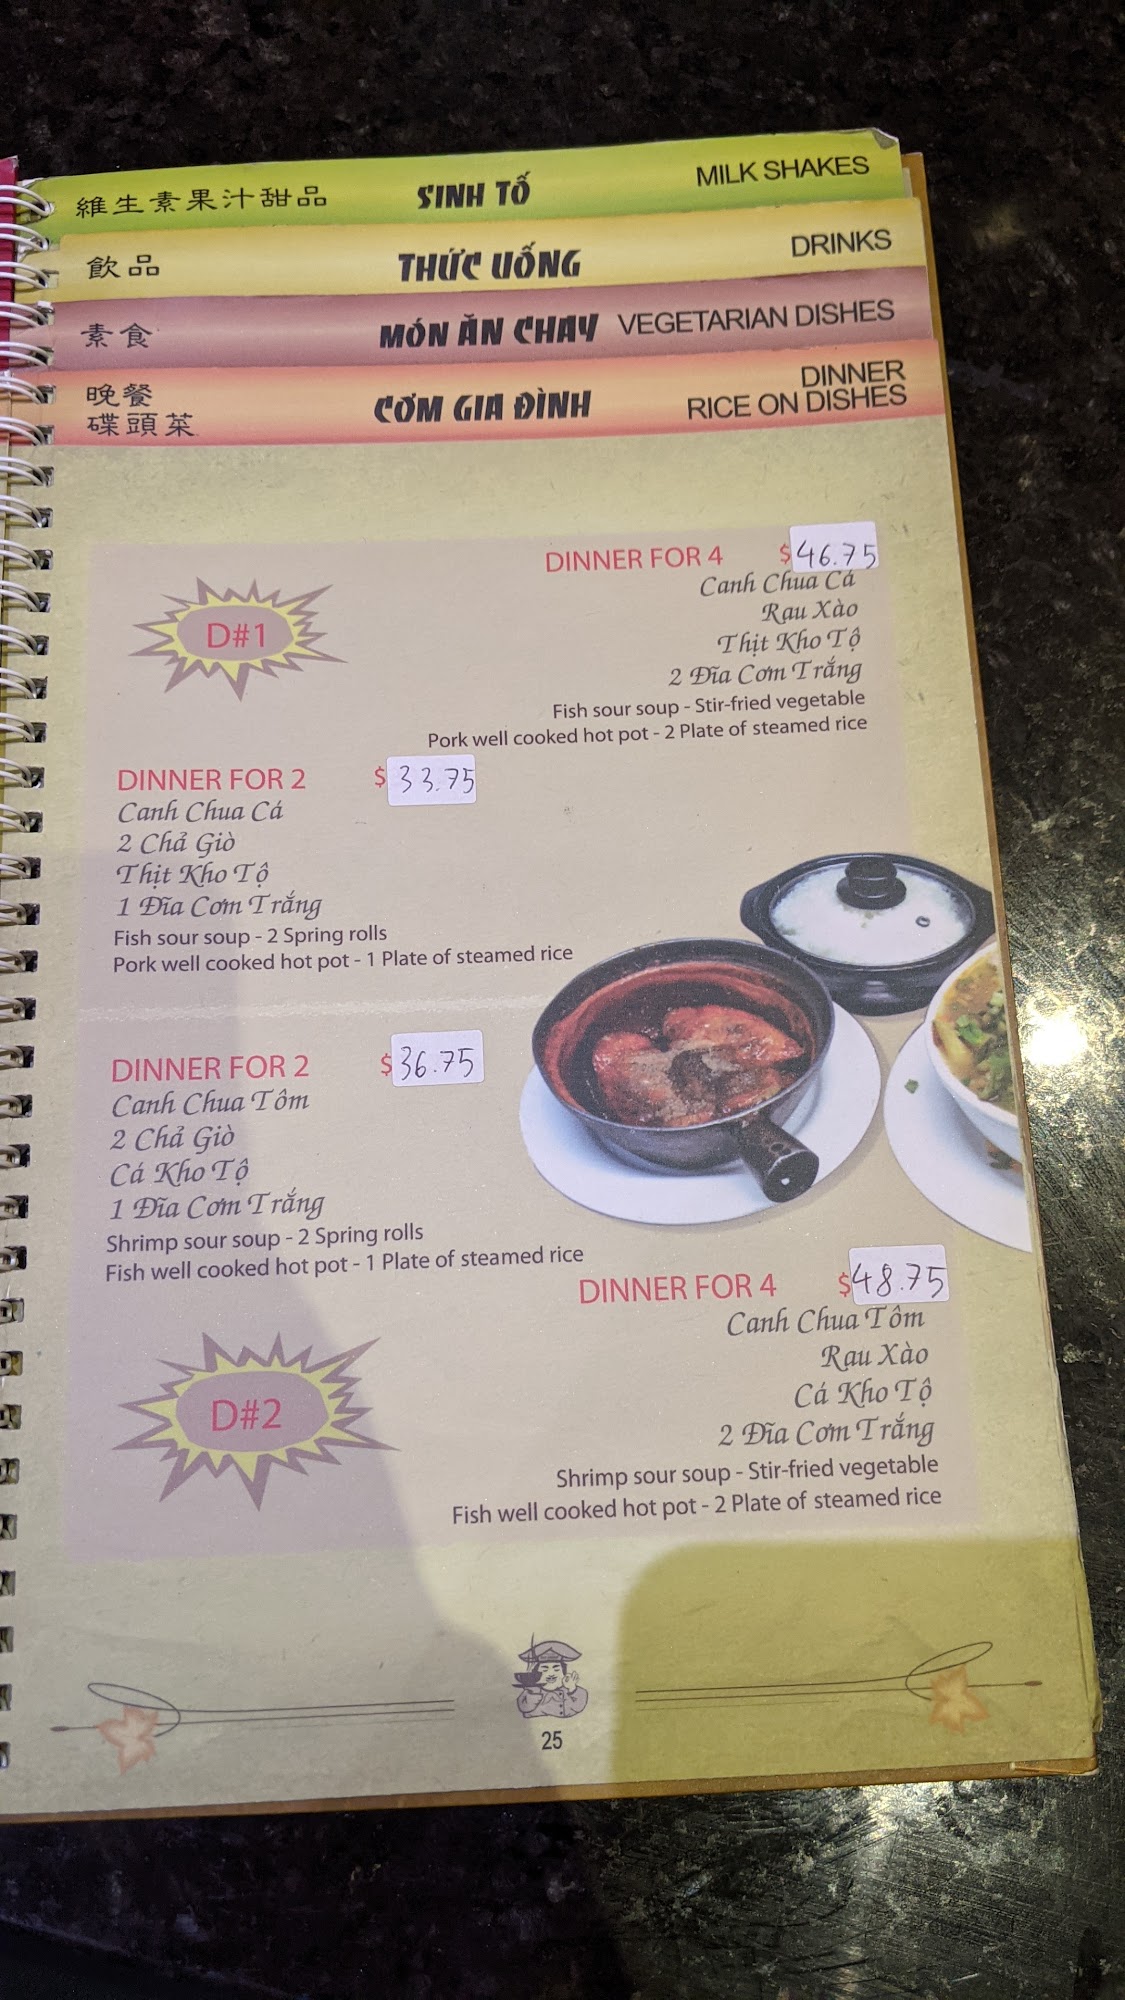 維生素果汁甜品 SINH TỐ MILK SHAKES
飲品 THỨC UỐNG DRINKS
素食 MÓN ĂN CHAY VEGETARIAN DISHES
晚餐
碟頭菜 CƠM GIA ĐÌNH DINNER
RICE ON DISHES
D#1
DINNER FOR 4 $46.75
Canh Chua Cá
Rau Xào
Thịt Kho Tộ
2 Đĩa Cơm Trắng
Fish sour soup - Stir-fried vegetable
Pork well cooked hot pot - 2 Plate of steamed rice
DINNER FOR 2 $33.75
Canh Chua Cá
2 Chả Giò
Thịt Kho Tộ
1 Đĩa Cơm Trắng
Fish sour soup - 2 Spring rolls
Pork well cooked hot pot - 1 Plate of steamed rice
DINNER FOR 2 $36.75
Canh Chua Tôm
2 Chả Giò
Cá Kho Tộ
1 Đĩa Cơm Trắng
Shrimp sour soup - 2 Spring rolls
Fish well cooked hot pot - 1 Plate of steamed rice
DINNER FOR 4 $48.75
Canh Chua Tôm
Rau Xào
Cá Kho Tộ
2 Đĩa Cơm Trắng
Shrimp sour soup - Stir-fried vegetable
Fish well cooked hot pot - 2 Plate of steamed rice
D#2
25